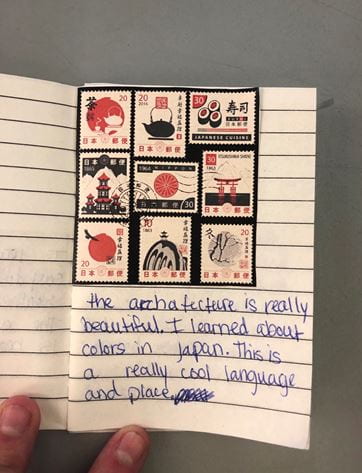 20
20
2016
30
寿司
日本郵便
JAPANESE CUISINE
日本郵便
日本郵便
日本郵便
1865
1964
NIPPON
30
30
ITSUKUSHIMA SHRINE
日本郵便
20
日本郵便
1863
日本郵便
20
日本郵便
the archatecture is really
beautiful. I learned about
colors in Japan. This is
a really cool language
and place.